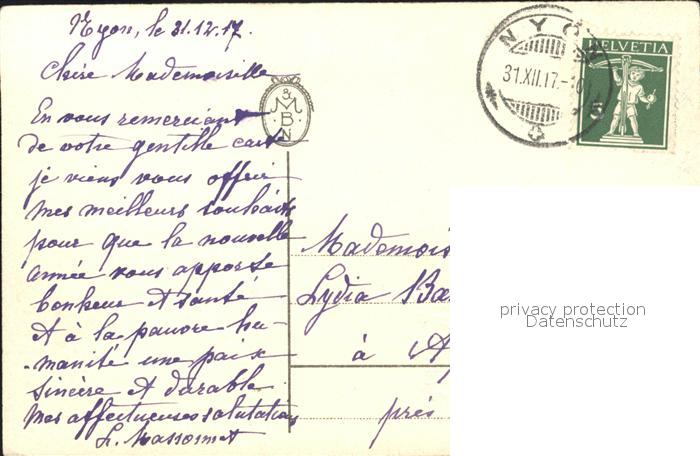 Nyon, le 31.12.17.
Chère Mademoiselle
En vous remerciant
de votre gentille carte
je viens vous offrir
mes meilleurs souhaits
pour que la nouvelle
année vous apporte
bonheur et santé
et à la pauvre hu-
-manité une paix
sincère et durable
Mes affectueuses salutations
&
M
B
N
NYON
31.XII.17.
HELVETIA
5
Mademois
Lydia
à
près
privacy protection
Datenschutz